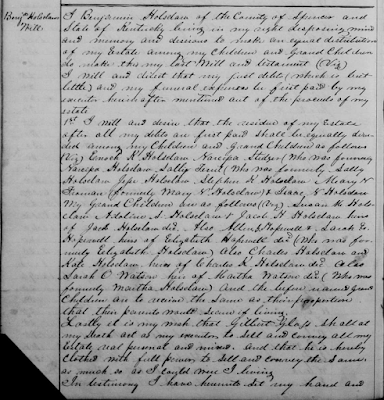 Benj Holsclaw
Will
I Benjamin Holsclaw of the County of Spencer and
State of Kentucky being in my right disposing mind
and memory and desirous to make an equal distribution
of my Estate among my Children and Grand Children
do make this my last Will and testament (Viz)
I will and direct that my just debts (which is but
little) and my funeral expenses be first paid by my
executor hereinafter mentioned out of the proceeds of my
estate
1st I will and desire that the residue of my Estate
after all my debts are first paid shall be equally devi
ded among my Children and Grand Children as follows
(Viz) Enoch K. Holsclaw (who was formerly
Holsclaw Sally (who was formerly Sally
Holsclaw Holsclaw Stephen S Holsclaw Mary V
(formerly Mary V Holsclaw) & Isaac Holsclaw
My Grand Children are as follows (Viz) Susan M Hols
claw Adeline S Holsclaw & Jacob H Holsclaw heirs
of Jack Holsclaw decd Also Allen Hopewell & Sarah E
Hopewell heirs of Elizabeth Hopewell decd (who was for
merly Elizabeth Holsclaw) Also Charles Holsclaw and
Kate Holsclaw heirs of Charles K Holsclaw decd also
Sarah O Watson heir of Martha Watson decd (who was
formerly Martha Holsclaw) And the before named Grand
Children are to receive the same as their proportion
that their parents would were if living
Lastly it is my wish that Gilbert Glass shall at
my death act as my executor to sell and convey all my
Estate real personal and mixed. And that he is hereby
Clothed with full power to sell and convey the same
as much so as I could were I living
In testimony I have hereunto set my hand and